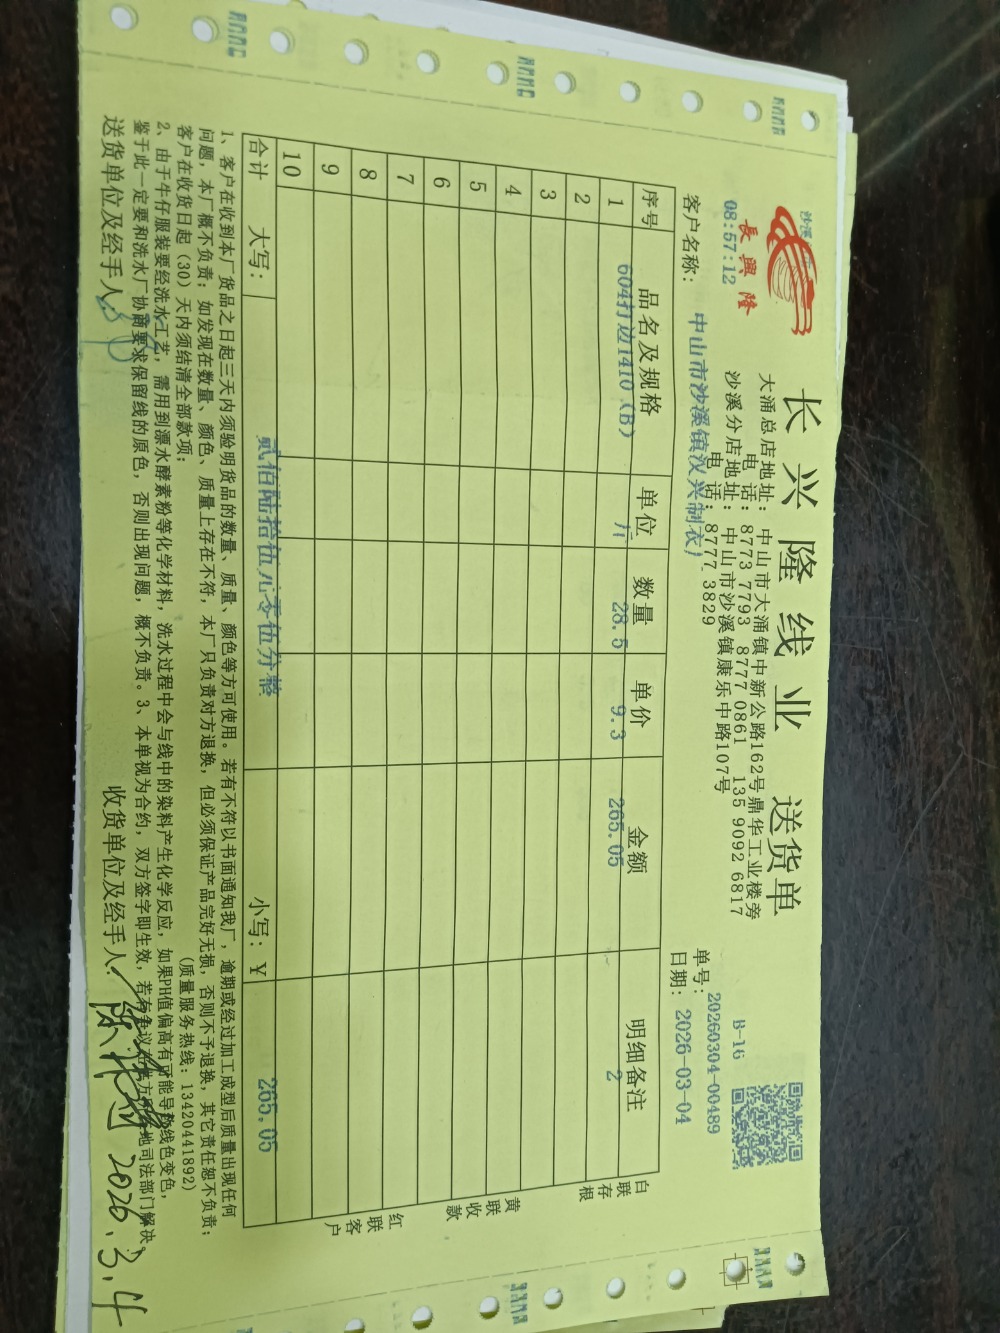 長興隆
08:57:12
长兴隆线业 送货单
大涌总店地址: 中山市大涌镇中新公路162号鼎华工业楼旁
电 话: 8773 7793 8777 0861 135 9092 6817
沙溪分店地址: 中山市沙溪镇康乐中路107号
电 话: 8777 3829
B-16
单号: 20260304-00489
日期: 2026-03-04
客户名称: 中山市沙溪镇汉兴制衣厂
序号 品名及规格 单位 数量 单价 金额 明细备注
1 604打边1410(B) 28.5 9.3 265.05 2
2
3
4
5
6
7
8
9
10
合计 大写: 贰佰陆拾伍元零伍分整 小写: ¥ 265.05
白联存根
黄联收款
红联客户
1、客户在收到本厂货品之日起三天内须验明货品的数量、质量、颜色等方可使用。若有不符以书面通知我厂, 逾期或经过加工成型后质量出现任何
问题, 本厂概不负责; 如发现在数量、颜色、质量上存在不符, 本厂只负责对方退换, 但必须保证产品完好无损, 否则不予退换, 其它责任恕不负责;
客户在收货日起 (30) 天内须结清全部款项; (质量服务热线: 13420441892)
2、由于牛仔服装要经洗水工艺, 需用到漂水酵素粉等化学材料, 洗水过程中会与线中的染料产生化学反应, 如果PH值偏高有可能导致线色变色,
鉴于此一定要和洗水厂协商要求保留线的原色, 否则出现问题, 概不负责。3、本单视为合约, 双方签字即生效, 若有争议在供方所在地司法部门解决。
送货单位及经手人: 收货单位及经手人: 2026.3.4